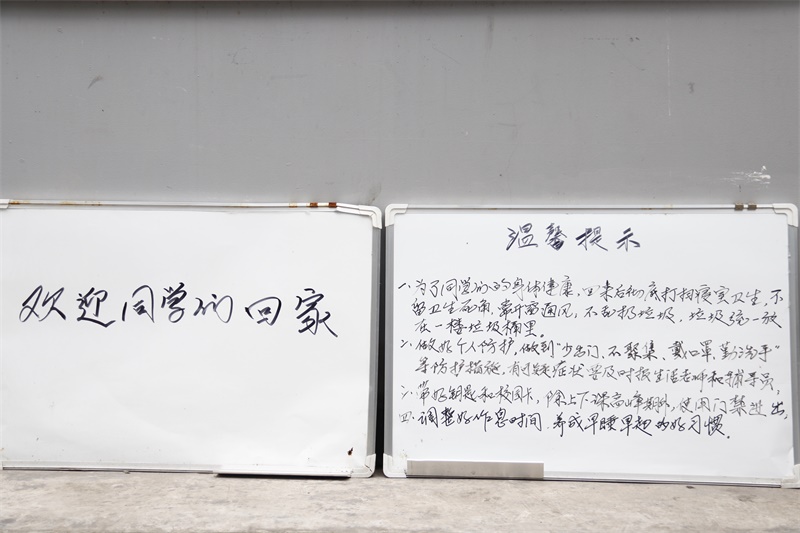 欢迎同学们回家
温馨提示
一、为了同学们的身体健康,回来后彻底打扫寝室卫生,不
留卫生死角,寝室常通风,不乱扔垃圾,垃圾统一放
在一楼垃圾桶里。
二、做好个人防护,做到“少出门、不聚集、戴口罩、勤洗手”
等防护措施,有过疑症状要及时报生活老师和辅导员,
三、带好钥匙和校园卡,除上下课高峰期外,使用门禁进出,
四、调整好作息时间,养成早睡早起的好习惯。